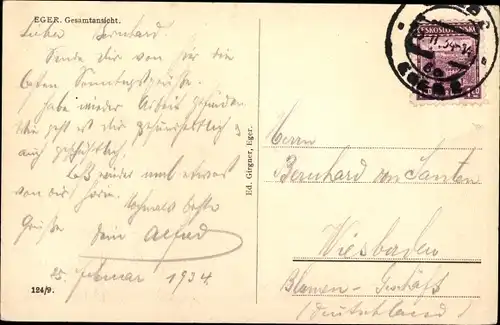 EGER. Gesamtansicht.
Lieber Bernhard.
Sende Dir von hier die
besten Sonntagsgrüße.
habe wieder Arbeit gefunden.
Wie geht es Dir gesundheitlich &
auch geschäftlich.
Laß wieder mal etwas
von Dir hören.
Nochmals beste
Grüße
Dein Alfred
25. Februar 1934.
124/9.
Ed. Girgner, Eger.
ČESKOSLOVENSKO
Herrn
Bernhard von Santen
Wiesbaden
Blumen-Geschäft
(Deutschland)